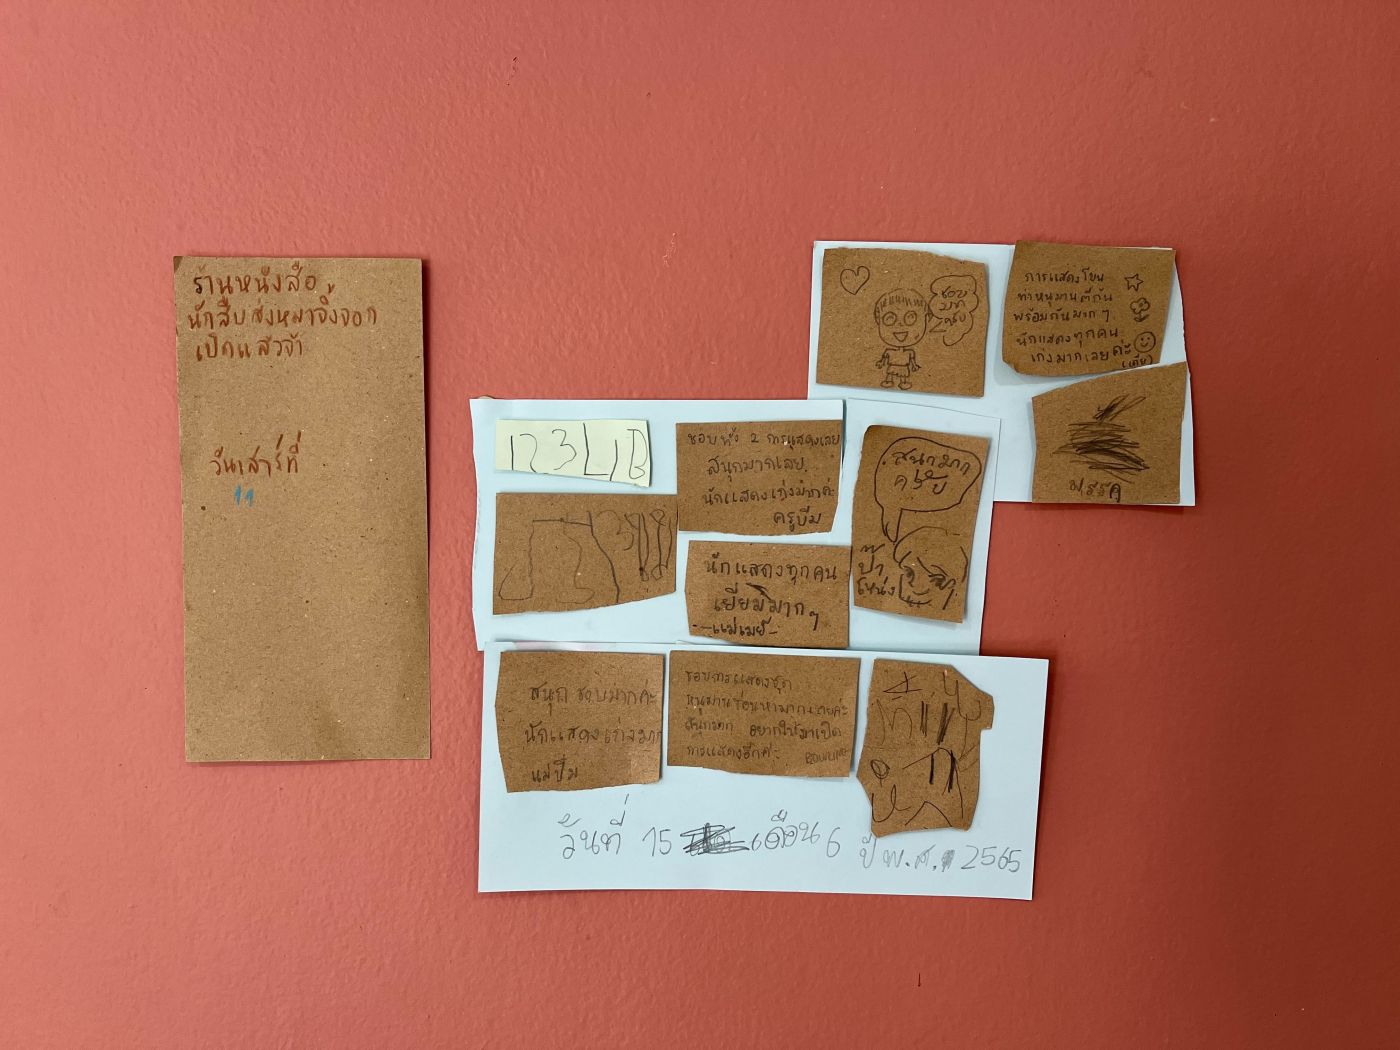 ร้านหนังสือ
นักสืบ
เปิดแล้วจ้า
วันเสาร์ที่
11
ชอบ
มาก
การแสดงโขน
หนุมาน
พร้อมกันมาก ๆ
นักแสดงทุกคน
เก่งมากเลยค่ะ
123LIB
ชอบทั้ง 2 การแสดงเลย
สนุกมากเลย
นักแสดงเก่งมากค่ะ
ครูบีม
สนุกมาก
ครับ
ป๊า
โหน่ง
นักแสดงทุกคน
เยี่ยมมาก ๆ
-แม่เมย์-
สนุก ชอบมากค่ะ
นักแสดงเก่งมาก
แม่ปีม
ชอบการแสดงชุด
หนุมาน
สนุกมาก อยากให้มาเปิด
การแสดงอีกค่ะ
วันที่ 15 เดือน 6 ปี พ.ศ. 2565